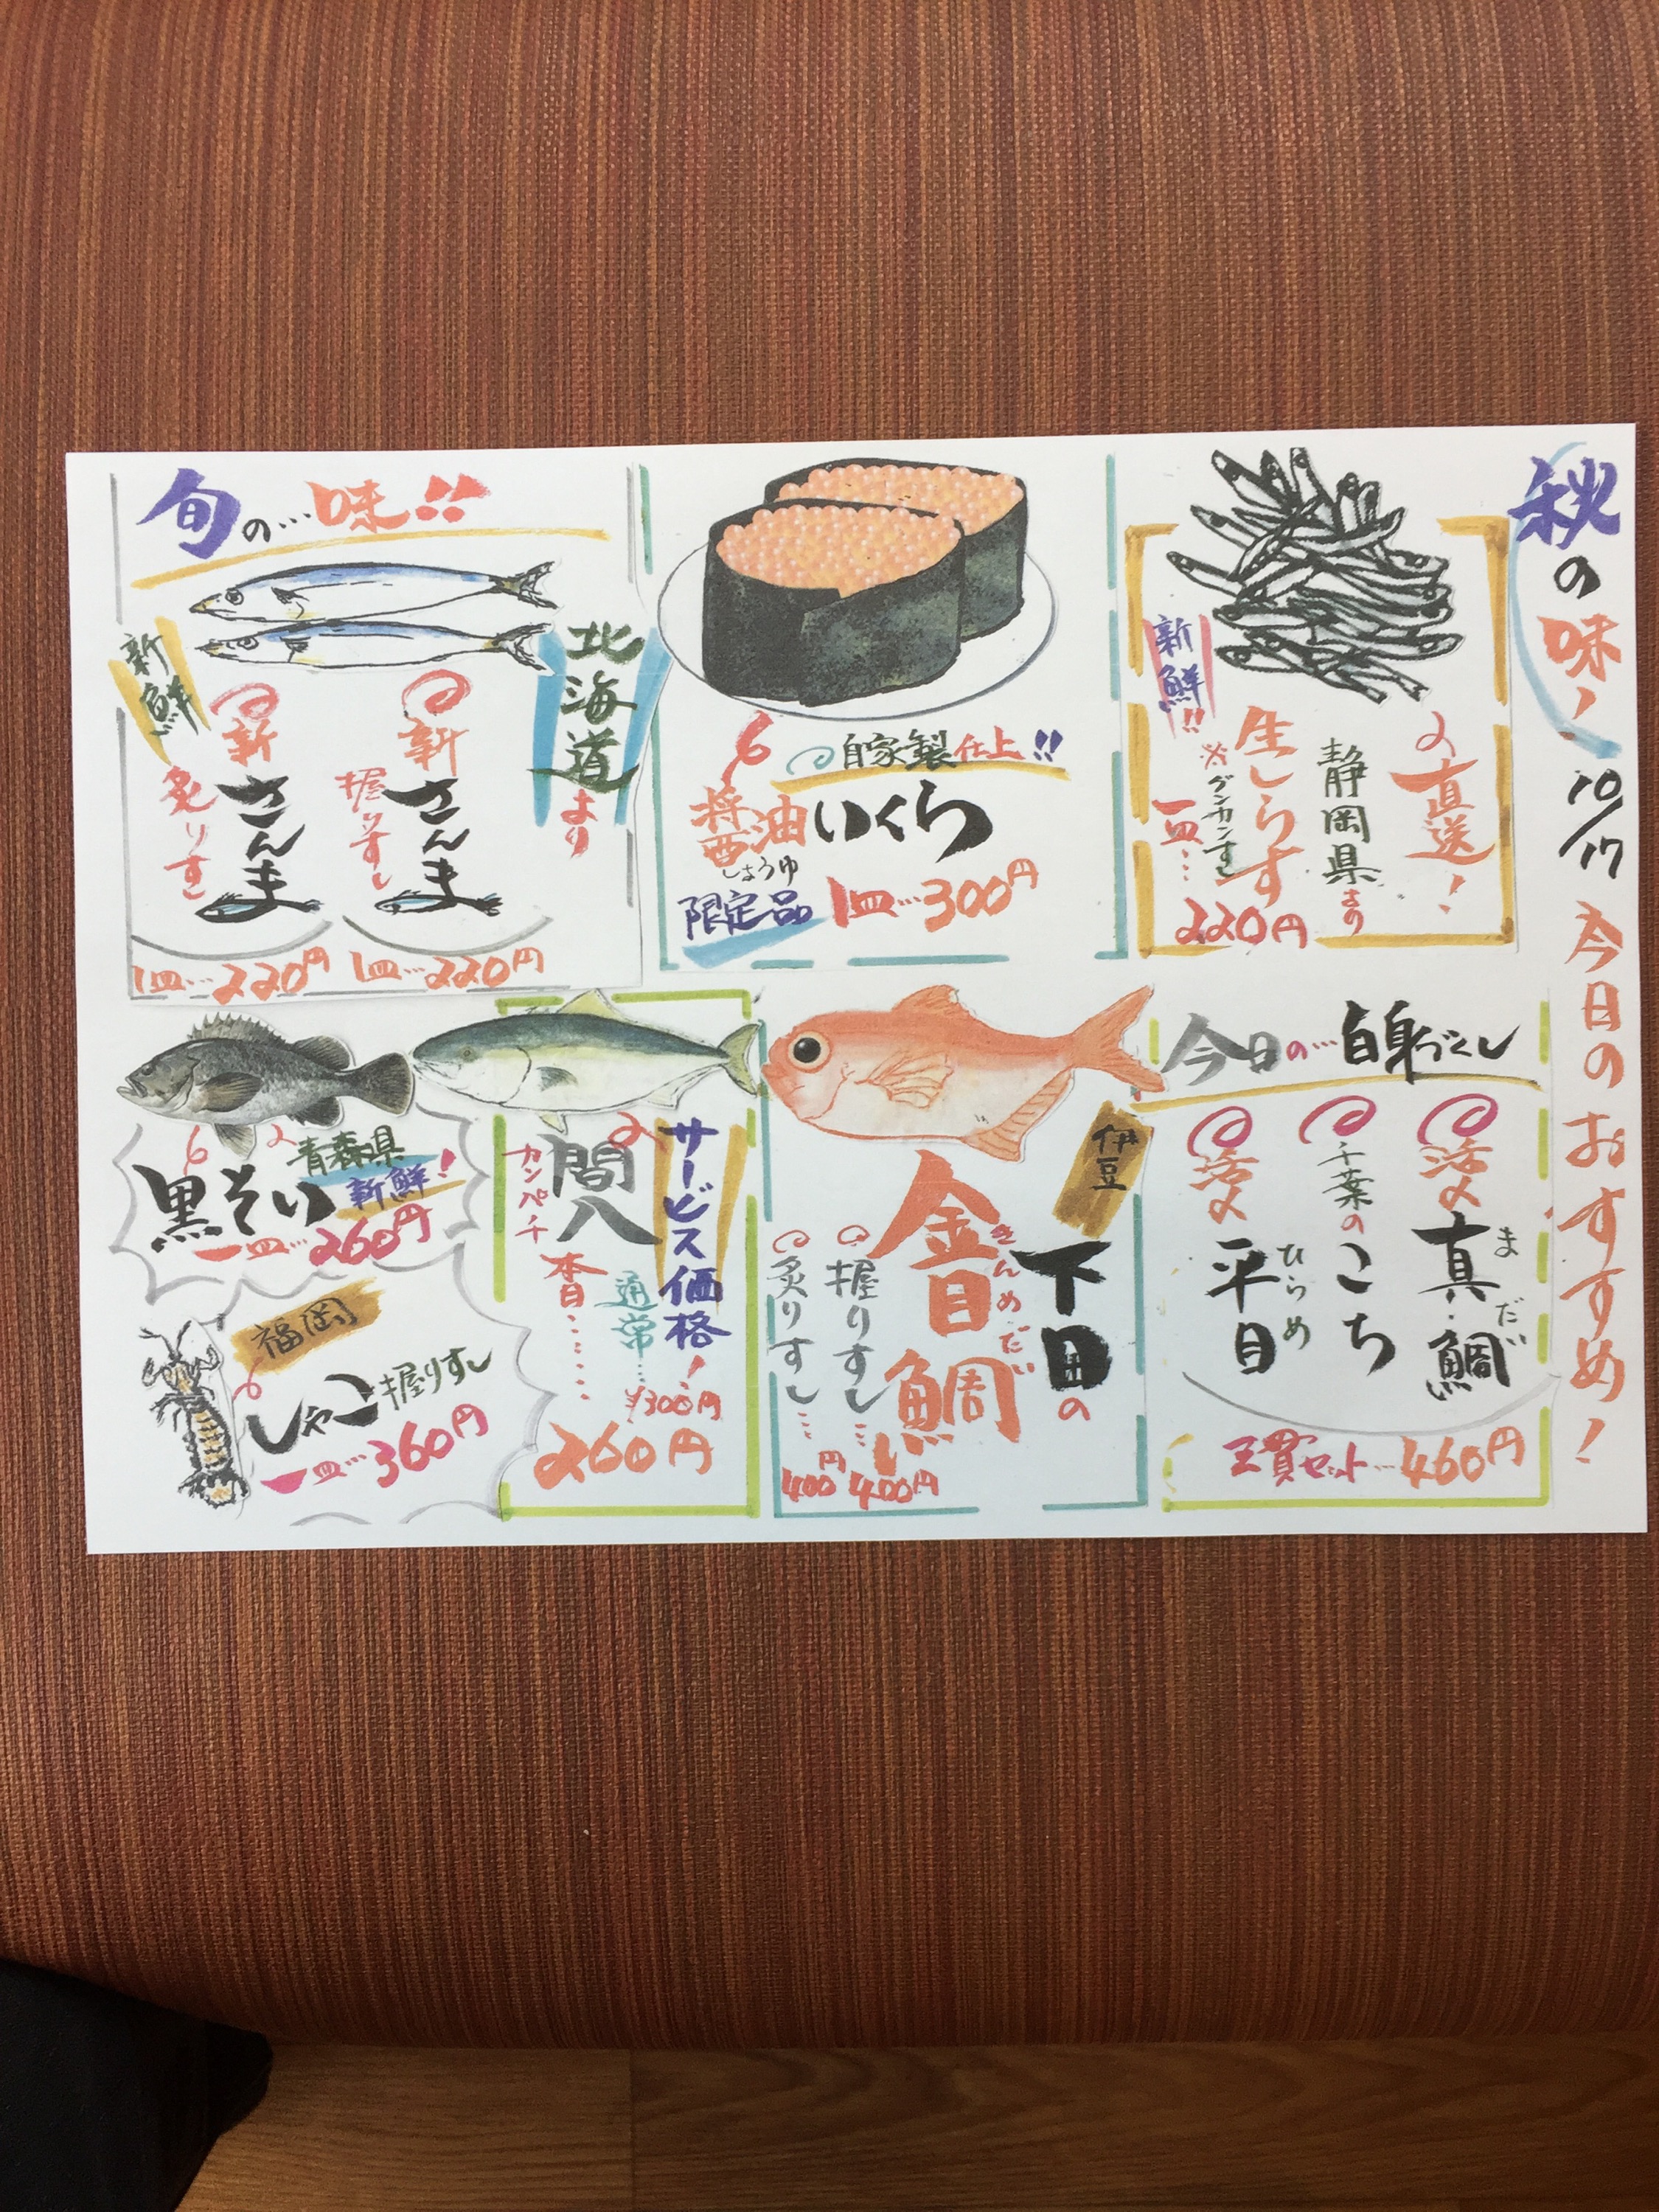 秋の味！
10/17
今日のおすすめ！
直送！
静岡県より
生しらす
※グンカンすし
新鮮!!
一皿…220円
自家製仕上!!
醤油いくら
しょうゆ
限定品
1皿…300円
旬の…味!!
新鮮
北海道より
新さんま
握りすし
1皿…220円
新さんま
炙りすし
1皿…220円
今日の…白身づくし
活〆
真鯛
まだい
千葉のこち
活〆
平目
ひらめ
三貫セット…460円
伊豆
下田の
金目鯛
きんめだい
握りすし…400円
炙りすし…400円
サービス価格！
間八
カンパチ
通常…¥300円
本日……
260円
青森県
新鮮！
黒そい
一皿…260円
福岡
しゃこ握りすし
一皿…360円